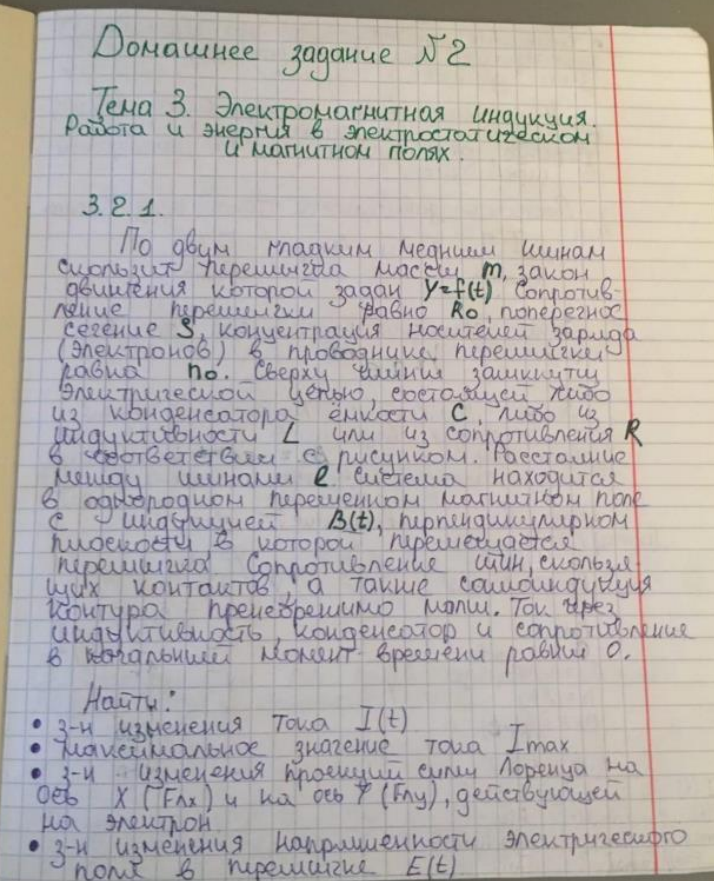 Домашнее задание №2
Тема 3. Электромагнитная индукция.
Работа и энергия в электростатическом
и магнитном полях.
3.2.1.
По двум гладким медным шинам
скользит перемычка массы m, закон
движения которой задан y=f(t) Сопротив-
ление перемычки равно R₀, поперечное
сечение S, концентрация носителей заряда
(электронов) в проводнике перемычки
равна n₀. Сверху шины замкнуты
электрической цепью, состоящей либо
из конденсатора ёмкости C, либо из
индуктивности L или из сопротивления R
в соответствии с рисунком. Расстояние
между шинами l система находится
в однородном переменном магнитном поле
с индукцией B(t), перпендикулярном
плоскости в которой перемещается
перемычка Сопротивление шин, скользя
щих контактов, а также самоиндукция
контура пренебрежимо малы. Ток чрез
индуктивность, конденсатор и сопротивление
в начальный момент времени равны 0.
Найти:
• з-н изменения тока I(t)
• максимальное значение тока Imax
• з-н изменения проекций силы Лоренца на
ось X (Fлx) и на ось Y (Fлy), действующей
на электрон
• з-н изменения напряженности электрического
поля в перемычке E(t)